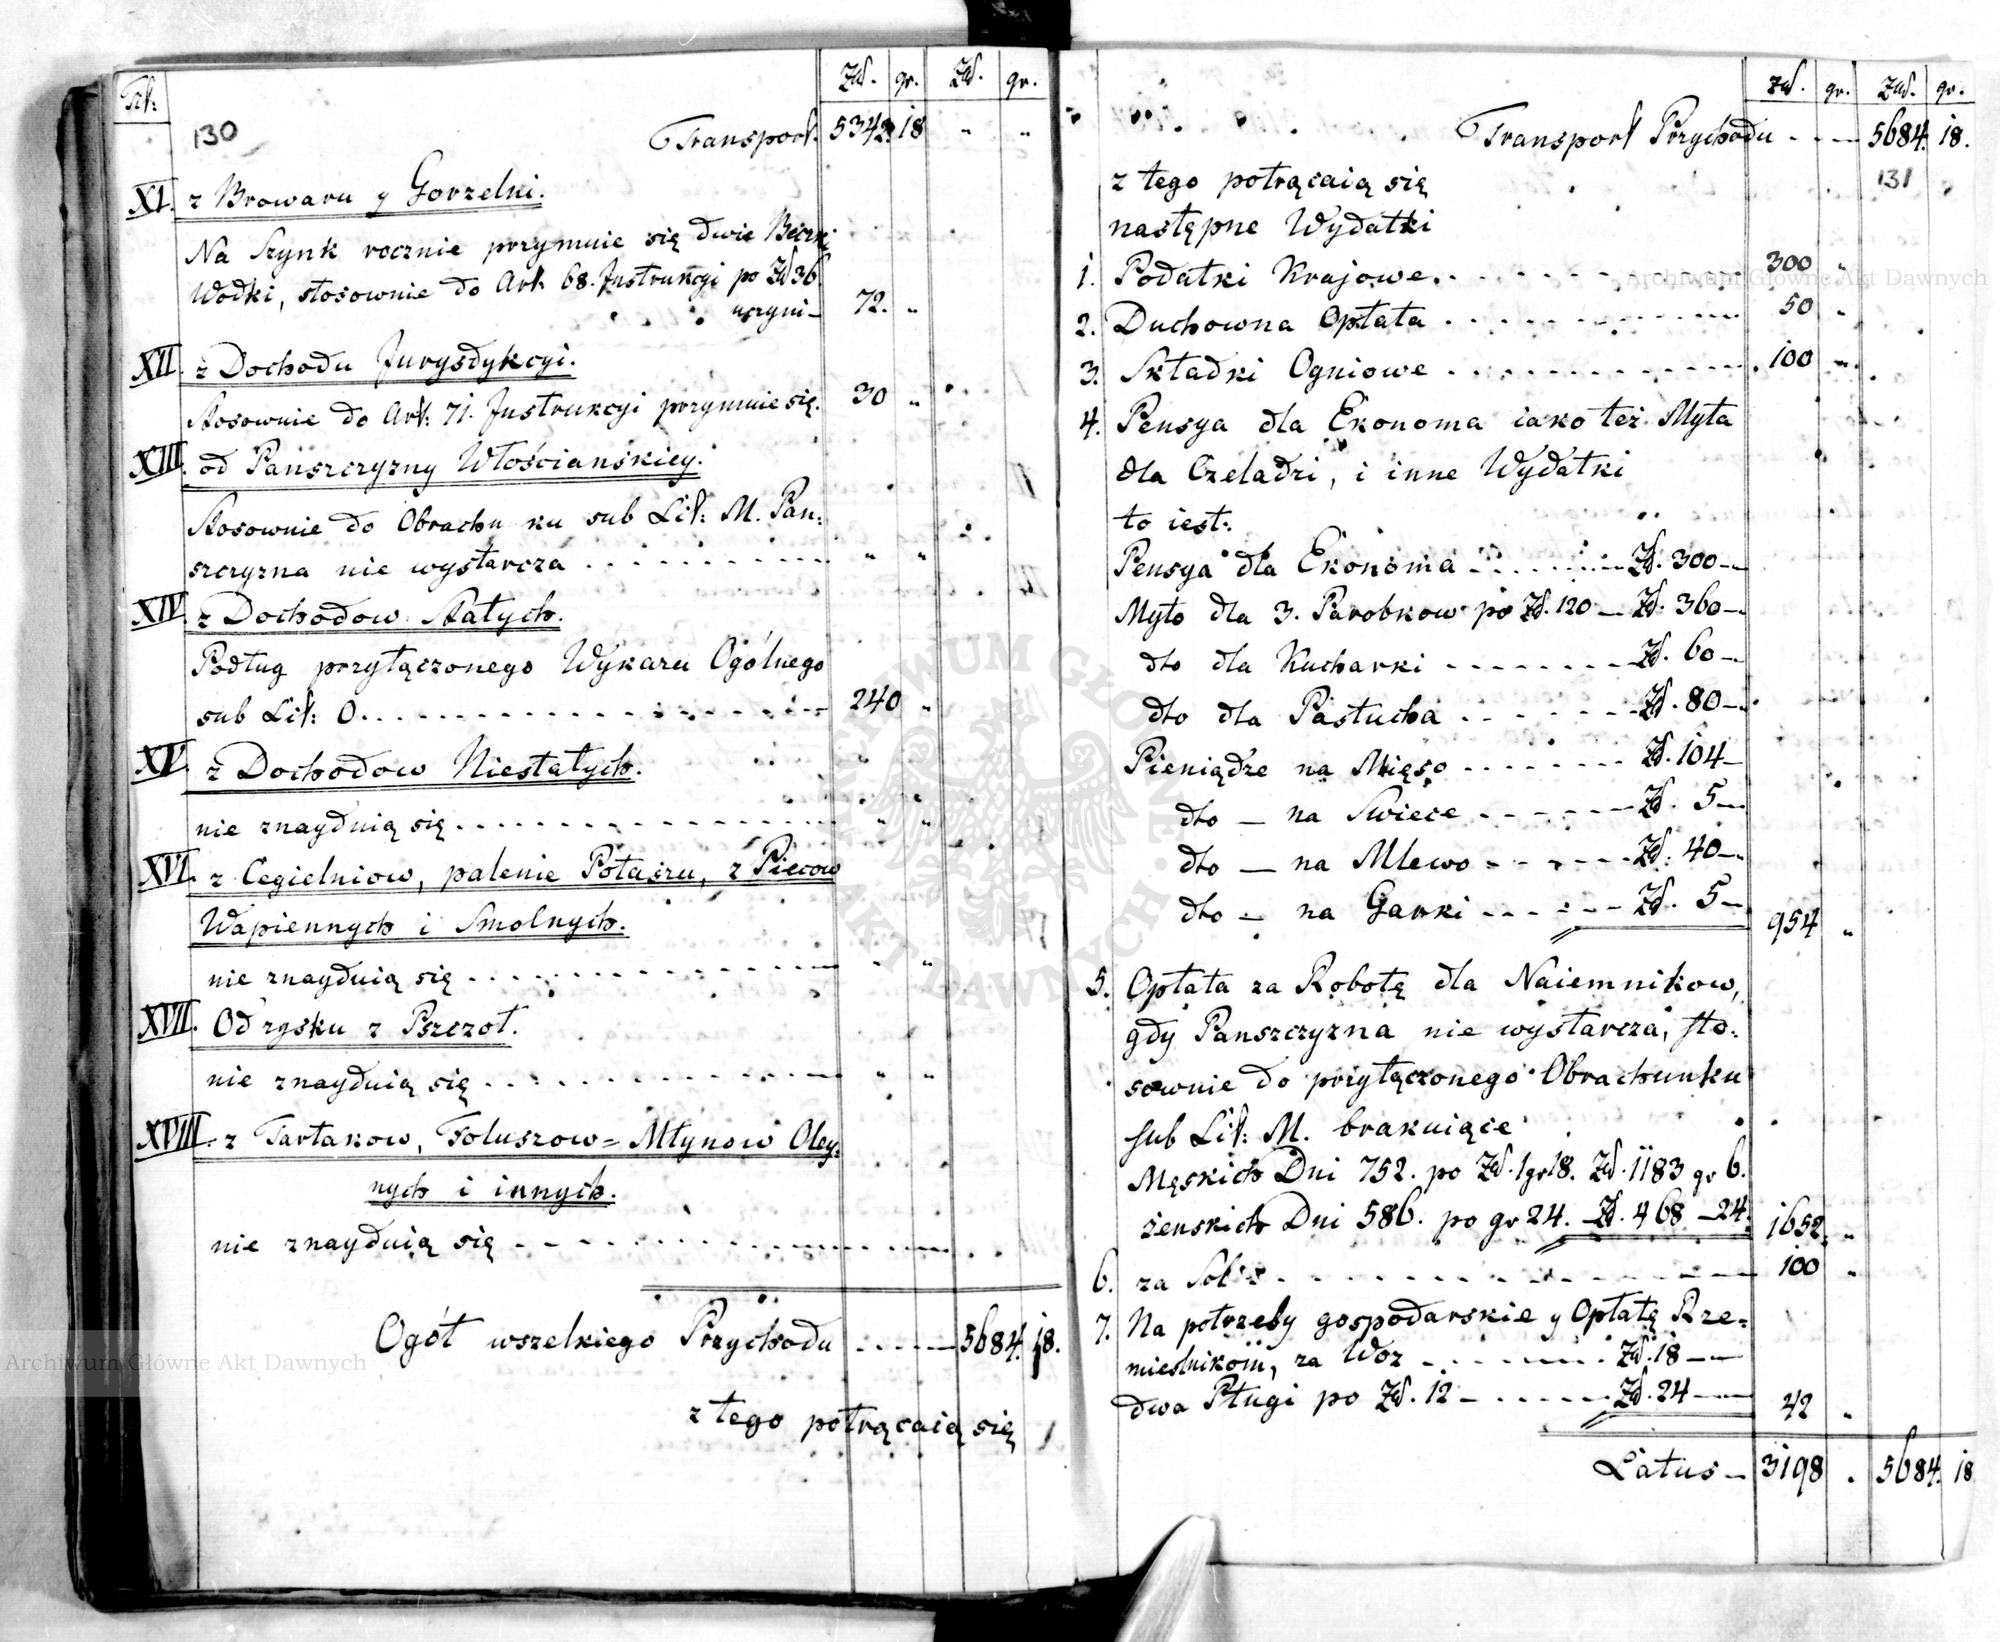 Tit: Zł. gr. Zł. gr.
130
Transport. 5342. 18 " "
XI. z Browaru y Gorzelni.
Na Szynk rocznie przymuie się dwie Beczki
Wodki, stosownie do Art. 68. Instrukcyi po Zł 36.
uczyni — 72. "
XII. z Dochodu Jurysdykcyi.
Stosownie do Art: 71. Instrukcyi przymuie się. 30 "
XIII. od Panszczyzny Włościanskiey.
Stosownie do Obrachu ku sub Lit: M. Pan:
szczyzna nie wystarcza . . . . . . . . " "
XIV. z Dochodow Stałych.
Podług przyłączonego Wykazu Ogólnego
sub Lit: O. . . . . . . . . . . 240 "
XV. z Dochodow Niestałych.
nie znayduią się . . . . . . . . . . " "
XVI. z Cegielniow, palenie Potaszu, z Piecow
Wapiennych i Smolnych.
nie znayduią się . . . . . . . . . . " "
XVII. Od zysku z Pszczoł.
nie znayduią się . . . . . . . . . . " "
XVIII. z Tartakow, Foluszow = Młynow Oley:
nych i innych.
nie znayduią się . . . . . . . . . .
Ogół wszelkiego Przychodu . . . . — 5684. 18.
z tego potrącaią się
Zł. gr. Zł. gr.
Transport Przychodu . . . — 5684. 18.
131
z tego potrącaią się
następne Wydatki
1. Podatki Krajowe . . . . . . . . 300 "
2. Duchowna Opłata . . . . . . . . 50 "
3. Składki Ogniowe . . . . . . . . 100 "
4. Pensya dla Ekonoma iako też Myta
dla Czeladzi, i inne Wydatki
to iest:
Pensya dla Ekonoma . . . . . Zł. 300 —
Myto dla 3. Parobkow po Zł. 120 — Zł. 360 —
dto dla Kucharki - - - - - - Zł. 60 —
dto dla Pastucha . . . . . . Zł. 80 —
Pieniądze na Mięso . . . . . Zł. 104 —
dto — na Swiece . . . . . Zł. 5 —
dto — na Mlewo . . . . . Zł. 40 —
dto — na Garki . . . . . Zł. 5 —
954 "
5. Opłata za Robotę dla Naiemnikow,
gdy Panszczyzna nie wystarcza, sto:
sownie do przyłączonego Obrachunku
sub Lit: M. brakuiące
Męskich Dni 752. po Zł. 1 gr 18. Zł. 1183 gr 6.
żenskich Dni 586. po gr 24. — Zł. 468 — 24. 1652. "
6. za Sol . . . . . . . . . . 100 "
7. Na potrzeby gospodarskie y Opłatę Rze=
mieslnikom, za Woz . . . . . Zł. 18 —
dwa Pługi po Zł. 12 — . . . . . Zł. 24 — 42 "
Latus — 3198 . 5684. 18
Archiwum Główne Akt Dawnych
Archiwum Główne Akt Dawnych
ARCHIWUM GŁÓWNE AKT DAWNYCH